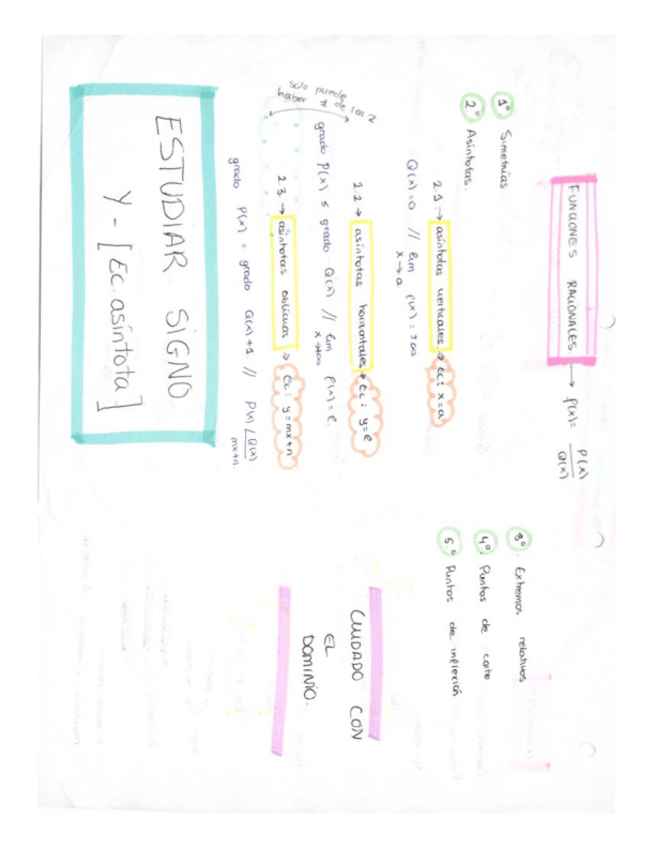 FUNCIONES RACIONALES → f(x) = P(x) / Q(x)
1º Simetrías
2º Asíntotas.
2.1 → asíntotas verticales → Ec: x=a
Q(x)=0 // lim x→a f(x) = ±∞
2.2 → asíntotas horizontales → Ec: y=l
grado P(x) ≤ grado Q(x) // lim x→±∞ f(x) = l
solo puede
haber 1 de las 2
2.3. → asíntotas oblicuas → Ec: y=mx+n
grado P(x) = grado Q(x)+1. // P(x) |Q(x)
mx+n.
ESTUDIAR SIGNO
Y - [Ec. asíntota]
3º. Extremos relativos
4º. Puntos de corte
5.º Puntos de inflexión
CUIDADO CON
EL
DOMINIO.